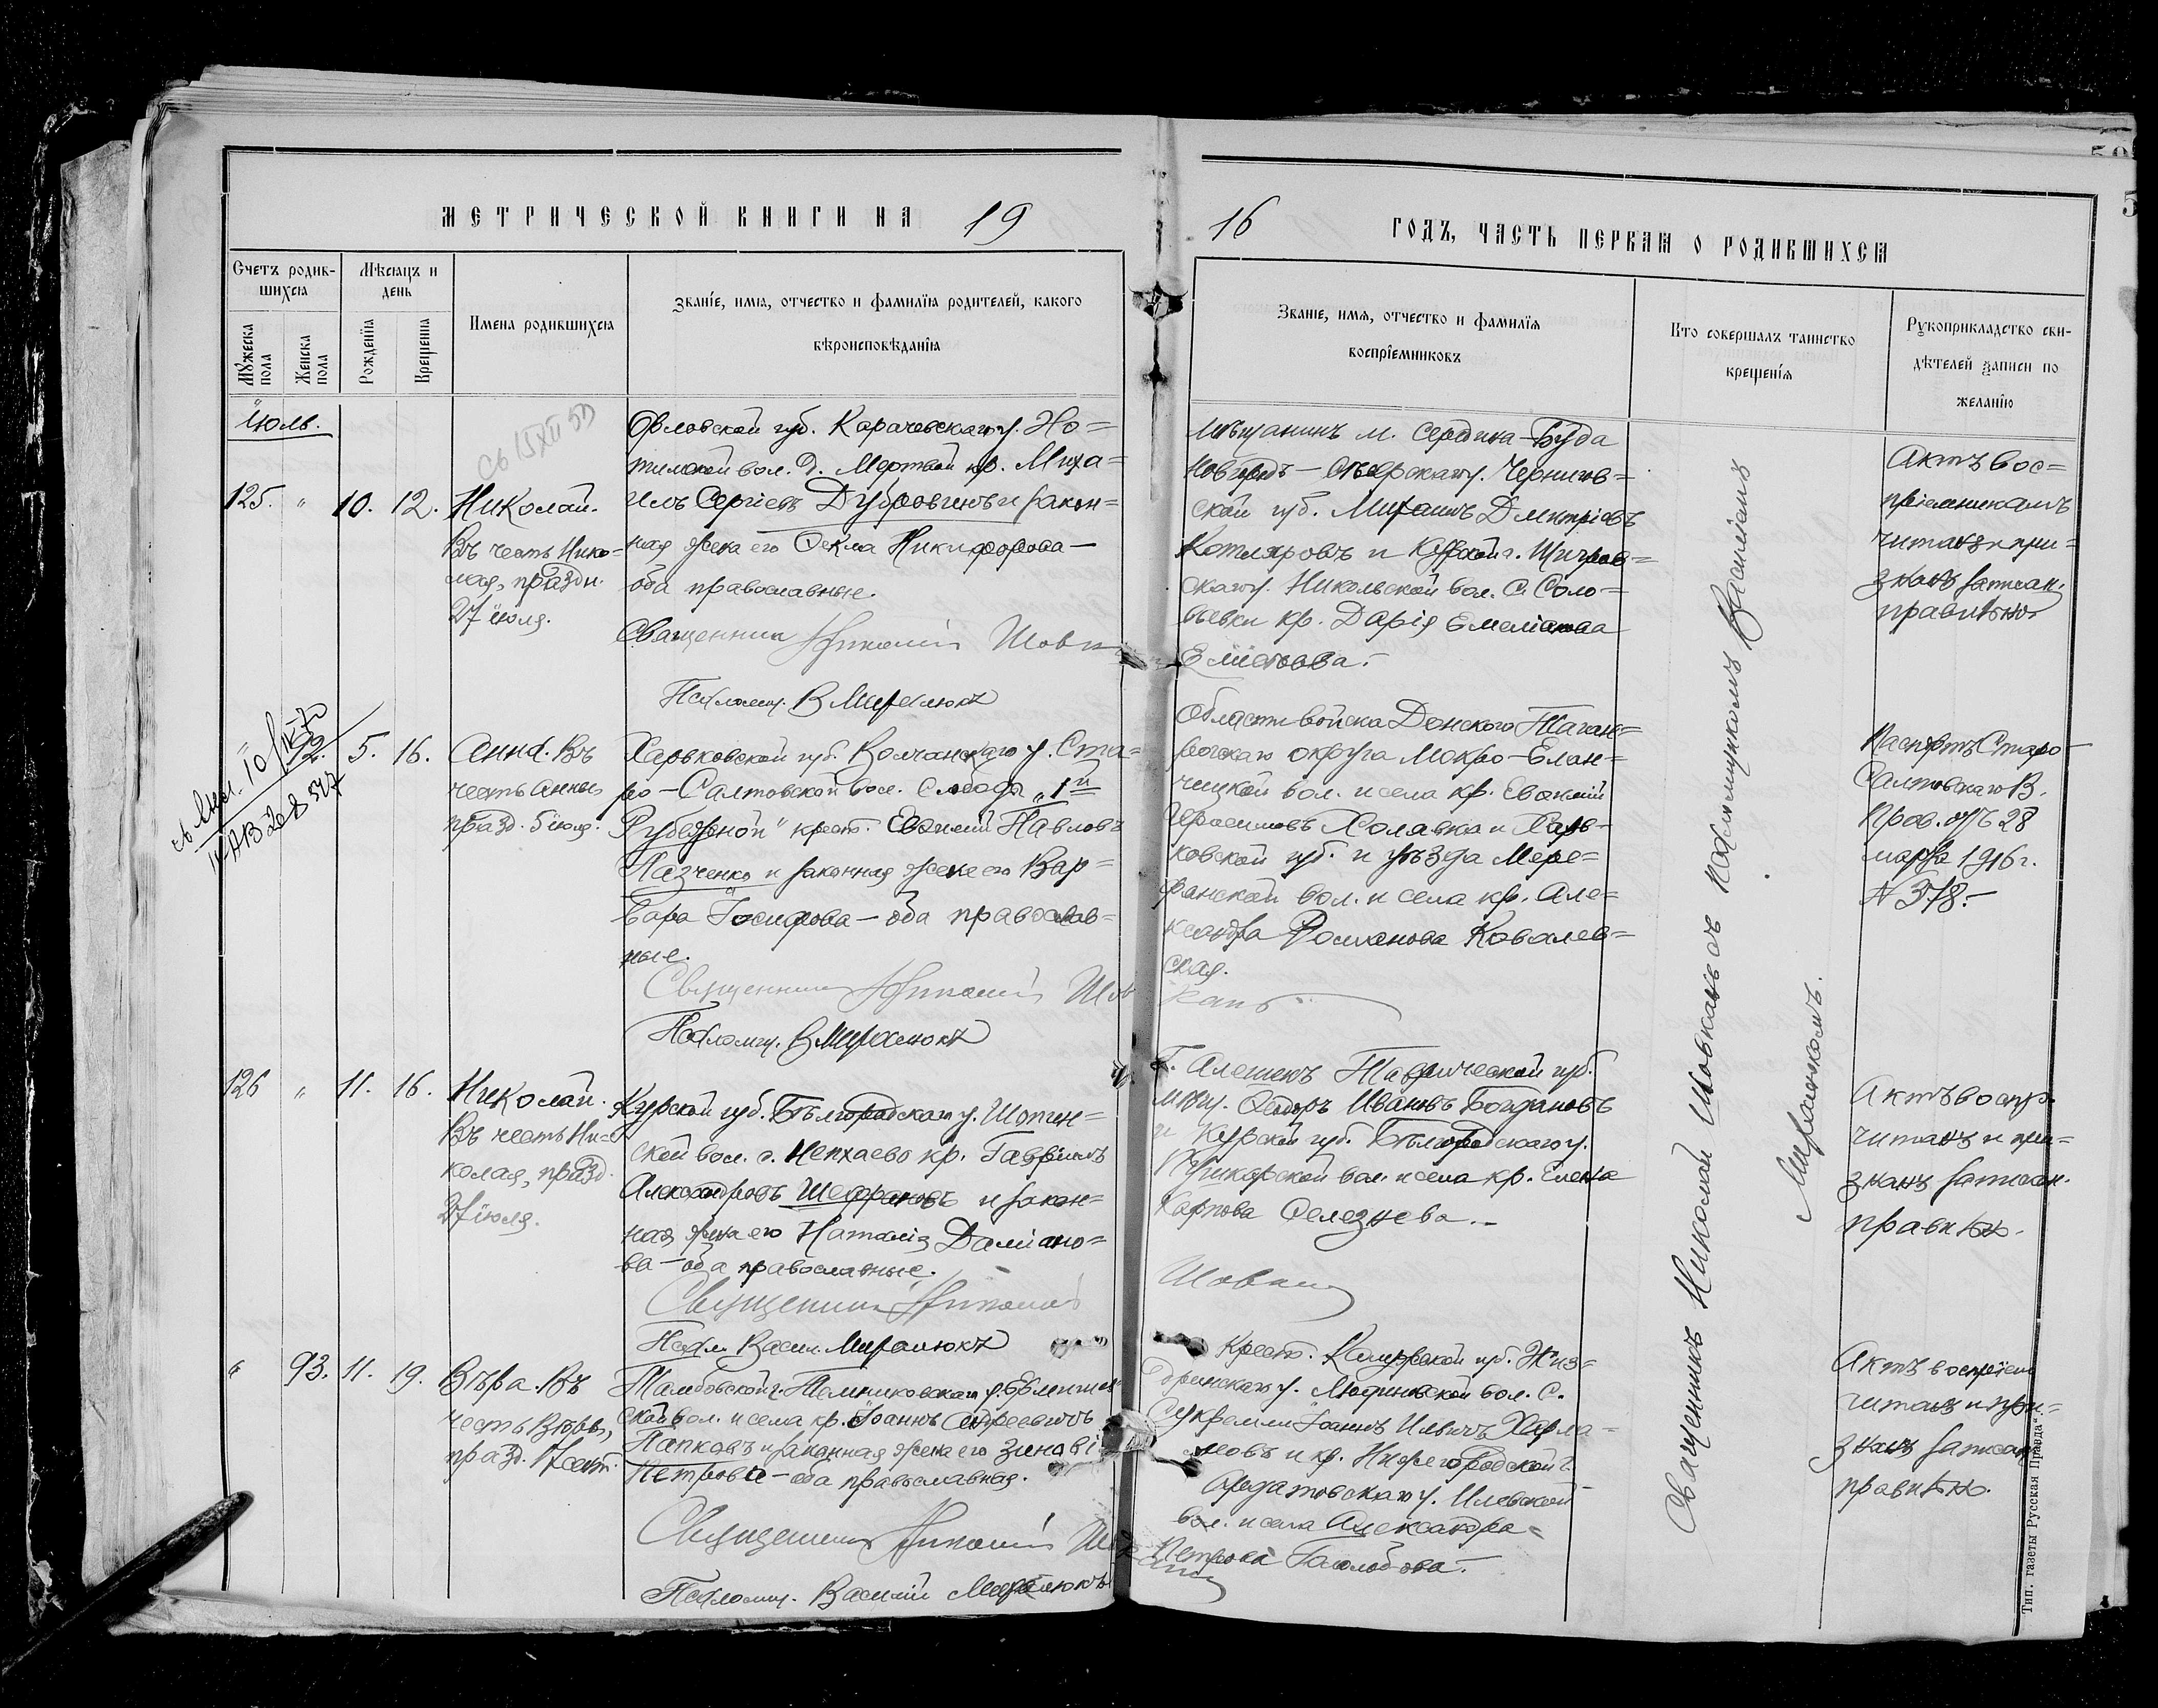 МЕТРИЧЕСКОЙ КНИГИ НА 19
16 ГОДЪ, ЧАСТЬ ПЕРВАЯ О РОДИВШИХСЯ
Счетъ родив-
шихся
Мѣсяцъ и
день
Имена родившихся
Званіе, имя, отчество и фамилія родителей, какого
вѣроисповѣданія
Мужеска
пола
Женска
пола
Рожденія
Крещенія
Званіе, имя, отчество и фамилія
воспріемниковъ
Кто совершалъ таинство
крещенія
Рукоприкладство сви-
дѣтелей записи по
желанію
Іюль.
125. " 10. 12. Николай.
Въ честь Нико=
лая, праздн.
27 іюля.
Орловской губ. Карачевскаго у. Хо=
тимской вол. д. Мертвой кр. Миха=
илъ Сергіевъ Дубровинъ и закон=
ная жена его Ѳекла Никифорова —
оба православные.
Священник Николай Шовкан
Псаломщ. В Миралюкъ
Мѣщанинъ м. Середина-Буда
Новгродъ-Сѣверскаго у. Чернигов=
ской губ. Михаилъ Дмитріевъ
Котляровъ и Курской г. Щигров=
скаго у. Никольской вол. С. Соло=
вьевки кр. Дарія Емеліанова
Актъ вос=
пріемникамъ
читанъ и при=
знанъ записан.
правильно
" 92. 5. 16. Анна. Въ
честь Анны,
празд. 5 іюля.
Харьковской губ. Волчанскаго у. Ста=
ро-Салтовской вол. Слободы „1й
Рубежной" крест. Евѳимій Павловъ
Лазченко и законная жена его Вар=
вара Іосифова — оба православ=
ные.
Священник Николай Шовкань
Псаломщ. В Миралюкъ
Области Войска Донского Таган=
рогскаго округа Мокро-Елан=
чицкой вол. и села кр. Евѳимій
Герасимовъ Холявка и Харь=
ковской губ. и уѣзда Мере=
фянской вол. и села кр. Але=
ксандра Романова Ковалев=
ская.
Паспортъ Старо-
Салтовскаго В.
Прав. отъ 28
марта 1916 г.
№ 378.-
126 " 11. 16. Николай.
Въ честь Ни=
колая, празд.
27 іюля.
Курской губ. Бѣлгородскаго у. Шопин=
ской вол. с. Непхаево кр. Гавріилъ
Александровъ Шафрановъ и закон=
ная жена его Наталія Даміано=
ва — оба православные.
Священник Николай Шовкан
Псалм. Васил. Миралюкъ
Г. Алешекъ Таврической губ.
мѣщ. Ѳедоръ Ивановъ Богдановъ
и Курской губ. Бѣлгородскаго у.
Пушкарской вол. и села кр. Елена
Карпова Селезнева.-
Актъ воспр.
читанъ и при=
знанъ записан.
правильн.
" 93. 11. 19. Вѣра. Въ
честь Вѣры,
празд. 17 сент.
Тамбовской г. Темниковскаго у.
ской вол. и села кр. Іоаннъ Андреевичъ
Папковъ и законная жена его Зиновія
Петрова — оба православная.
Священник Николай Шовкан
Псаломщ. Василій Миралюкъ
Крест. Калужской губ. Жиз=
дринскаго у. Людиновской вол. С.
Сукремли Іоаннъ Ильичъ Харла=
мовъ и кр. Нижегородской г.
Ардатовскаго у. Илевской
вол. и села Александра=
Петрова
Актъ воспріем.
читанъ и при=
знанъ записан
правильн.
Священникъ Николай Шовкань съ псаломщикомъ Василіемъ
Миралюкомъ.
Тип. газеты „Русская Правда".